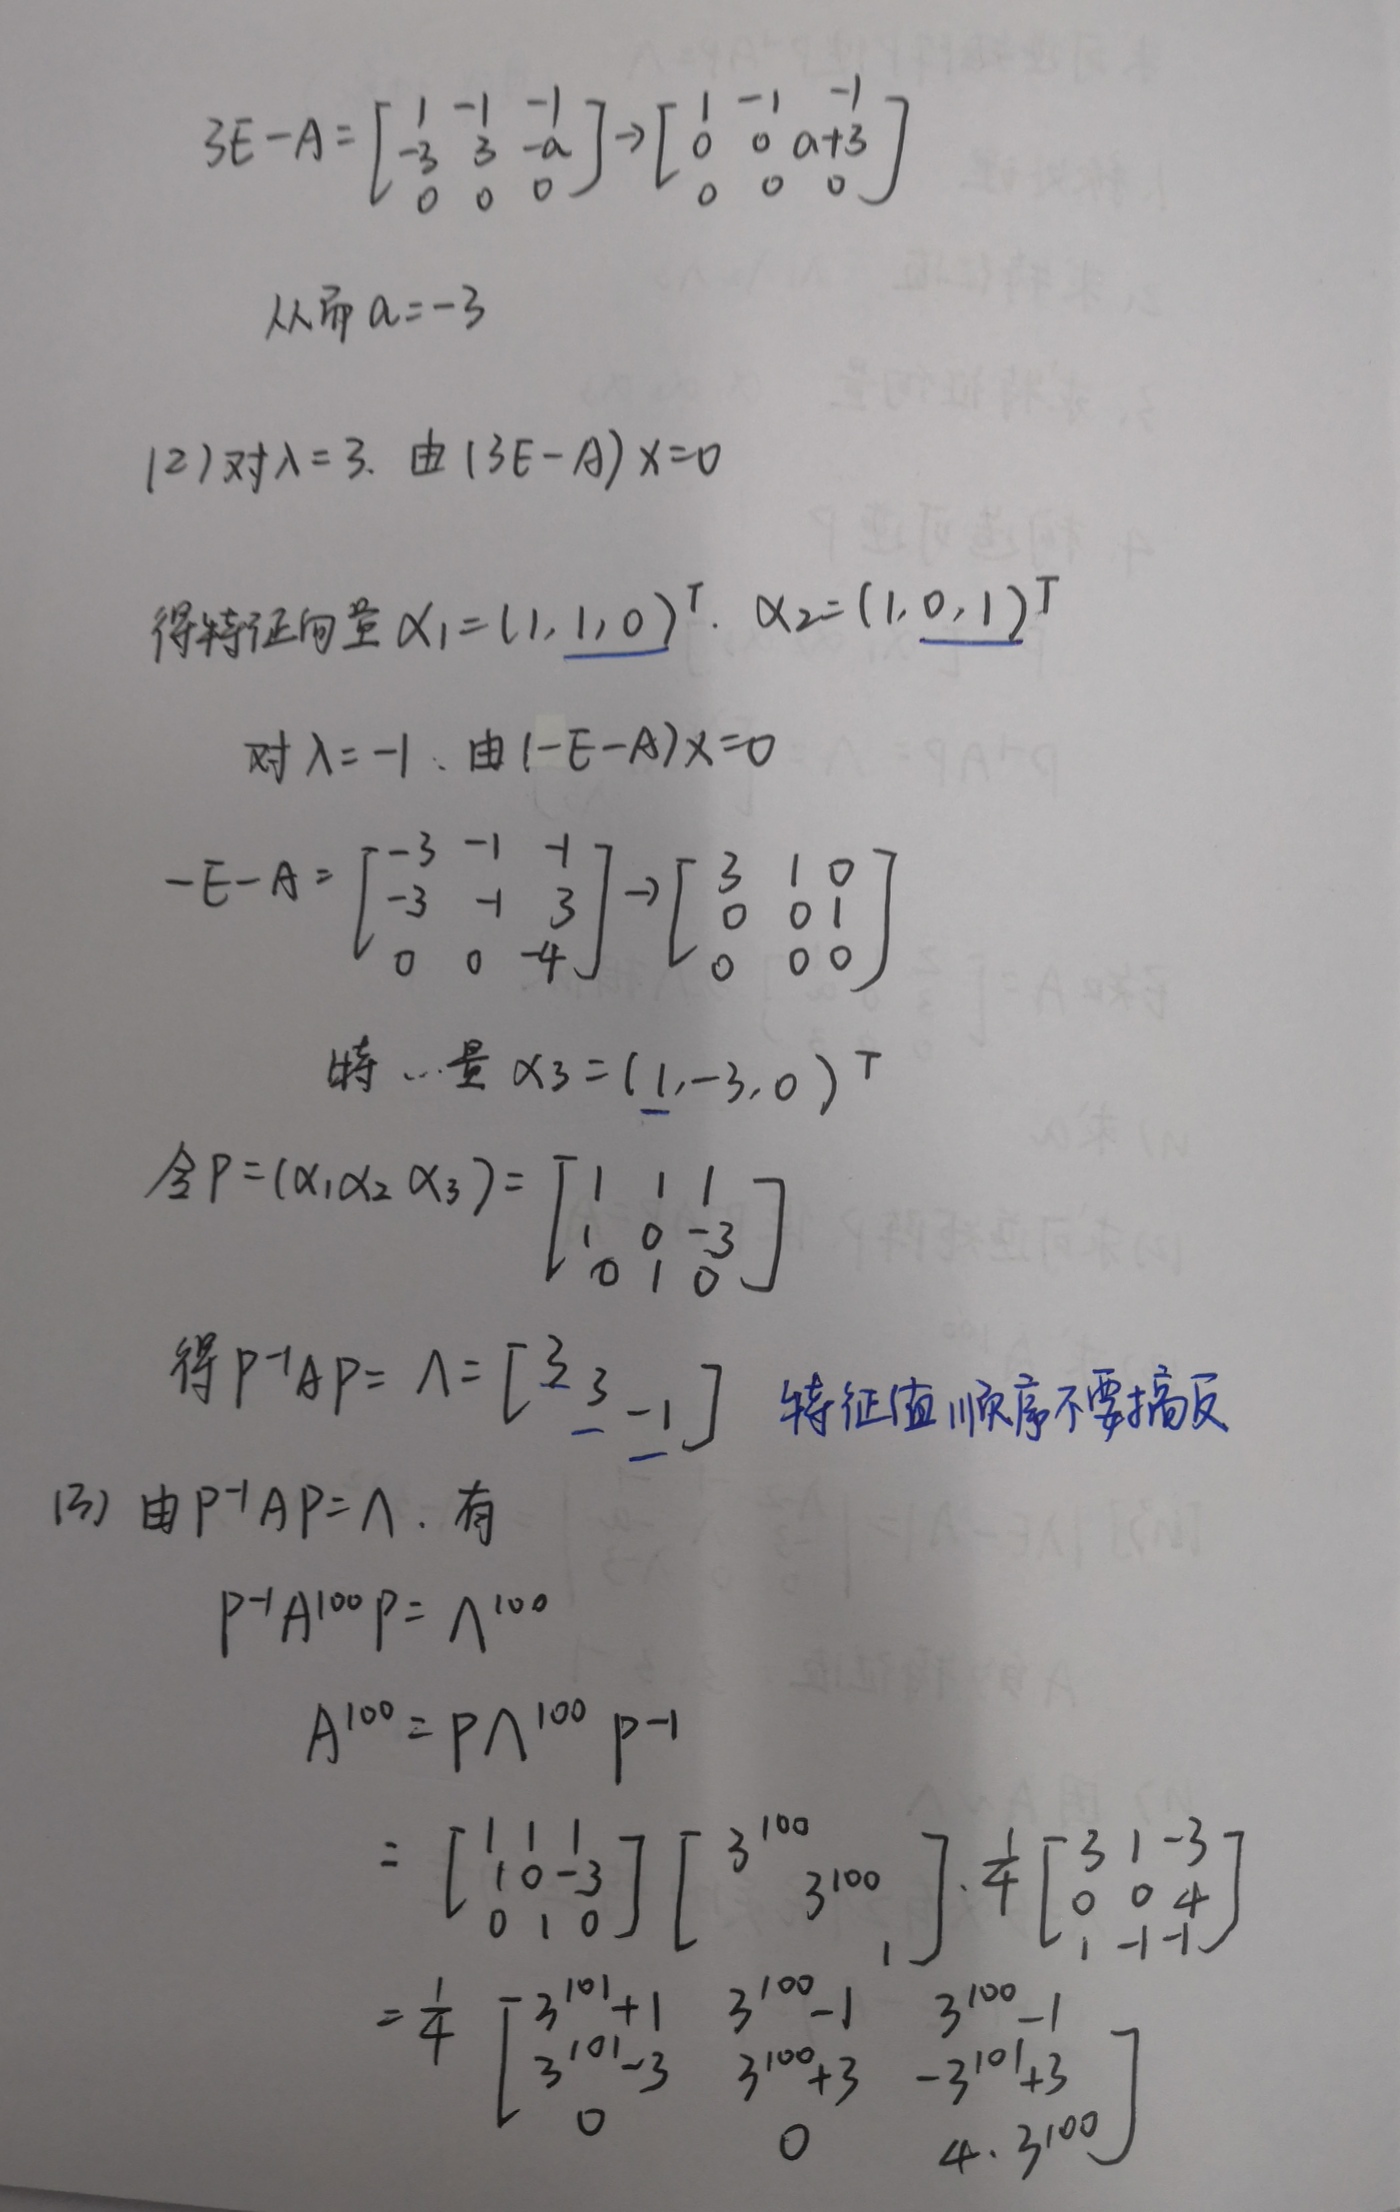 3E-A=[1 -1 -1; -3 3 -a; 0 0 0]→[1 -1 -1; 0 0 a+3; 0 0 0]
从而a=-3
(2)对λ=3. 由(3E-A)x=0
得特征向量α1=(1,1,0)^T. α2=(1,0,1)^T
对λ=-1、由(-E-A)x=0
-E-A=[-3 -1 -1; -3 -1 3; 0 0 -4]→[3 1 0; 0 0 1; 0 0 0]
特…量 α3=(1,-3,0)^T
令P=(α1α2 α3)=[1 1 1; 1 0 -3; 0 1 0]
得P^-1AP=Λ=[3 3 -1] 特征值顺序不要搞反
(3) 由P^-1AP=Λ. 有
P^-1A^100P=Λ^100
A^100=PΛ^100 P^-1
=[1 1 1; 1 0 -3; 0 1 0][3^100 3^100 1]·1/4[3 1 -3; 0 0 4; 1 -1 -1]
=1/4[3^101+1 3^100-1 3^100-1; 3^101-3 3^100+3 -3^101+3; 0 0 4·3^100]